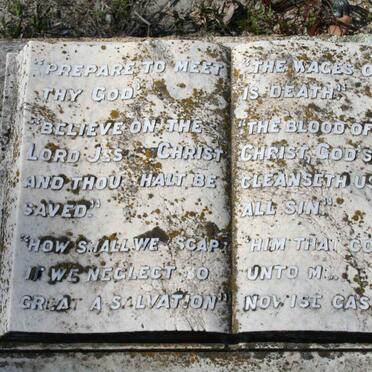 "PREPARE TO MEET
THY GOD."
"BELIEVE ON THE
LORD J SS CHRIST
AND THOU HALT BE
SAVED."
"HOW SHALL WE SCAP
IF WE NEGLECT SO
GREAT A SALVATION"
"THE WAGES O
IS DEATH."
"THE BLOOD OF
CHRIST, GOD'S
CLEANSETH US
ALL SIN."
"HIM THAT CO
UNTO M
NOWISE CAS